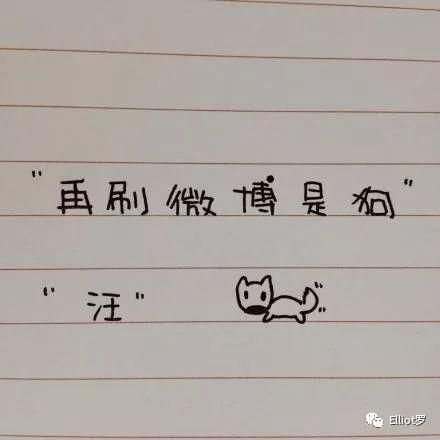 "再刷微博是狗"
"汪"
Elliot罗